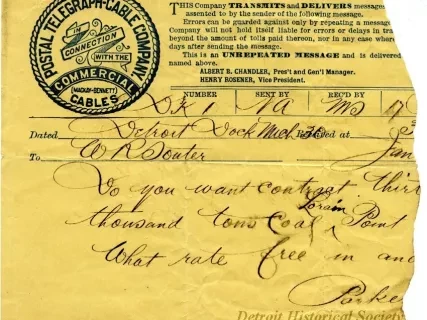 POSTAL TELEGRAPH-CABLE COMPANY.
IN CONNECTION
WITH THE
COMMERCIAL
(MACKAY-BENNETT)
CABLES
THIS Company TRANSMITS and DELIVERS messages
assented to by the sender of the following message.
Errors can be guarded against only by repeating a message
Company will not hold itself liable for errors or delays in tra
beyond the amount of tolls paid thereon, nor in any case where
days after sending the message.
This is an UNREPEATED MESSAGE and is delivered
named above.
ALBERT B. CHANDLER, Pres't and Gen'l Manager.
HENRY ROSENER, Vice President.
NUMBER SENT BY REC'D BY
DK 1 NA MS 17
Dated Detroit Dock Mich 30 Received at
To W R Souter Jan
Do you want contract thirt
Lorain
thousand tons Coal Point
What rate free in and
Parke
Detroit Historical Society